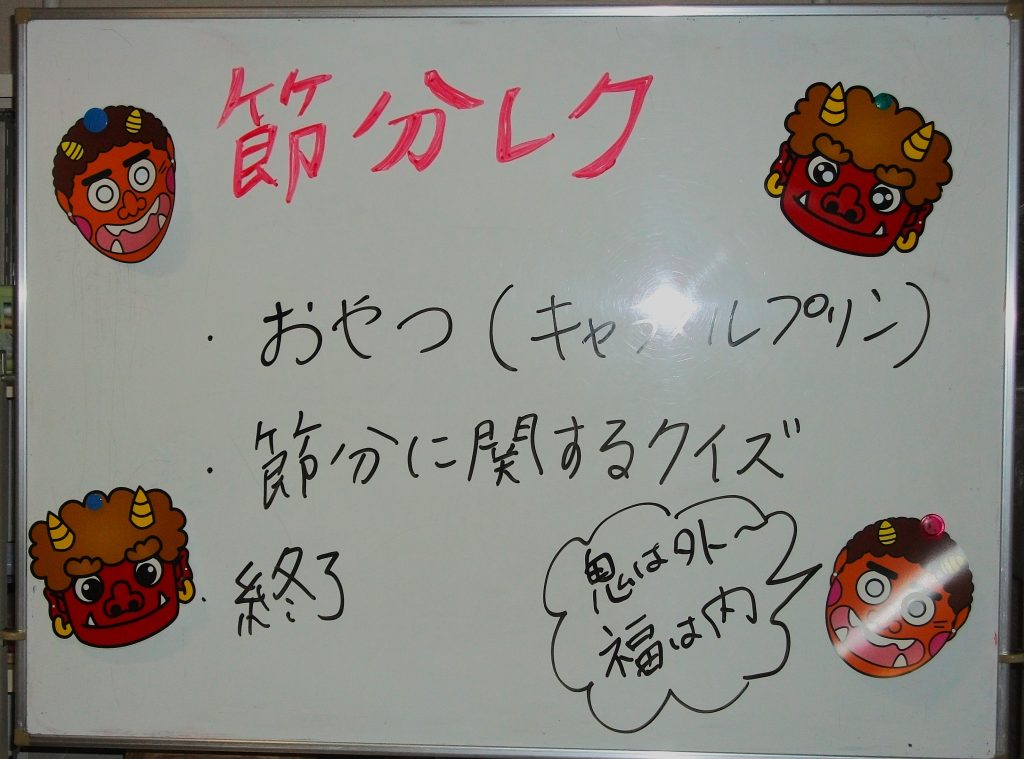 節分レク
・おやつ(キャラメルプリン)
・節分に関するクイズ
・終了
鬼は外〜
福は内